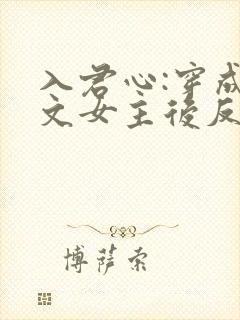 入君心:穿成
文女主後反
博萨索